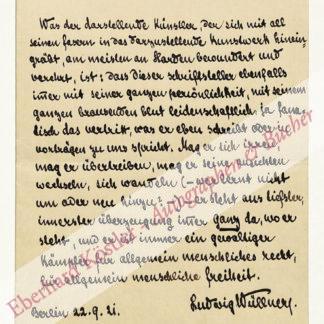 Was der darstellende Künstler, der sich mit all
seinen Fasern in das darzustellende Kunstwerk hinein-
gräbt, am meisten an Harden bewundert und
verehrt, ist: dass dieser Schriftsteller ebenfalls
immer mit seiner ganzen Persönlichkeit, mit seinem
ganzen brausenden Blut leidenschaftlich ja fana-
tisch das vertritt, was er eben schreibt oder in
Vorträgen zu uns spricht. Mag er sich irren,
mag er übertreiben, mag er seine Ansichten
wechseln, sich wandeln (– wer lernt nicht
um oder neu hinzu? –) er steht aus tiefster,
innerster Überzeugung immer ganz da, wo er
steht, und er ist immer ein gewaltiger
Kämpfer für allgemein menschliches Recht,
für allgemein menschliche Freiheit.
Berlin 22.9.21. Ludwig Wüllner
Eberhard Köstler Autographen & Bücher